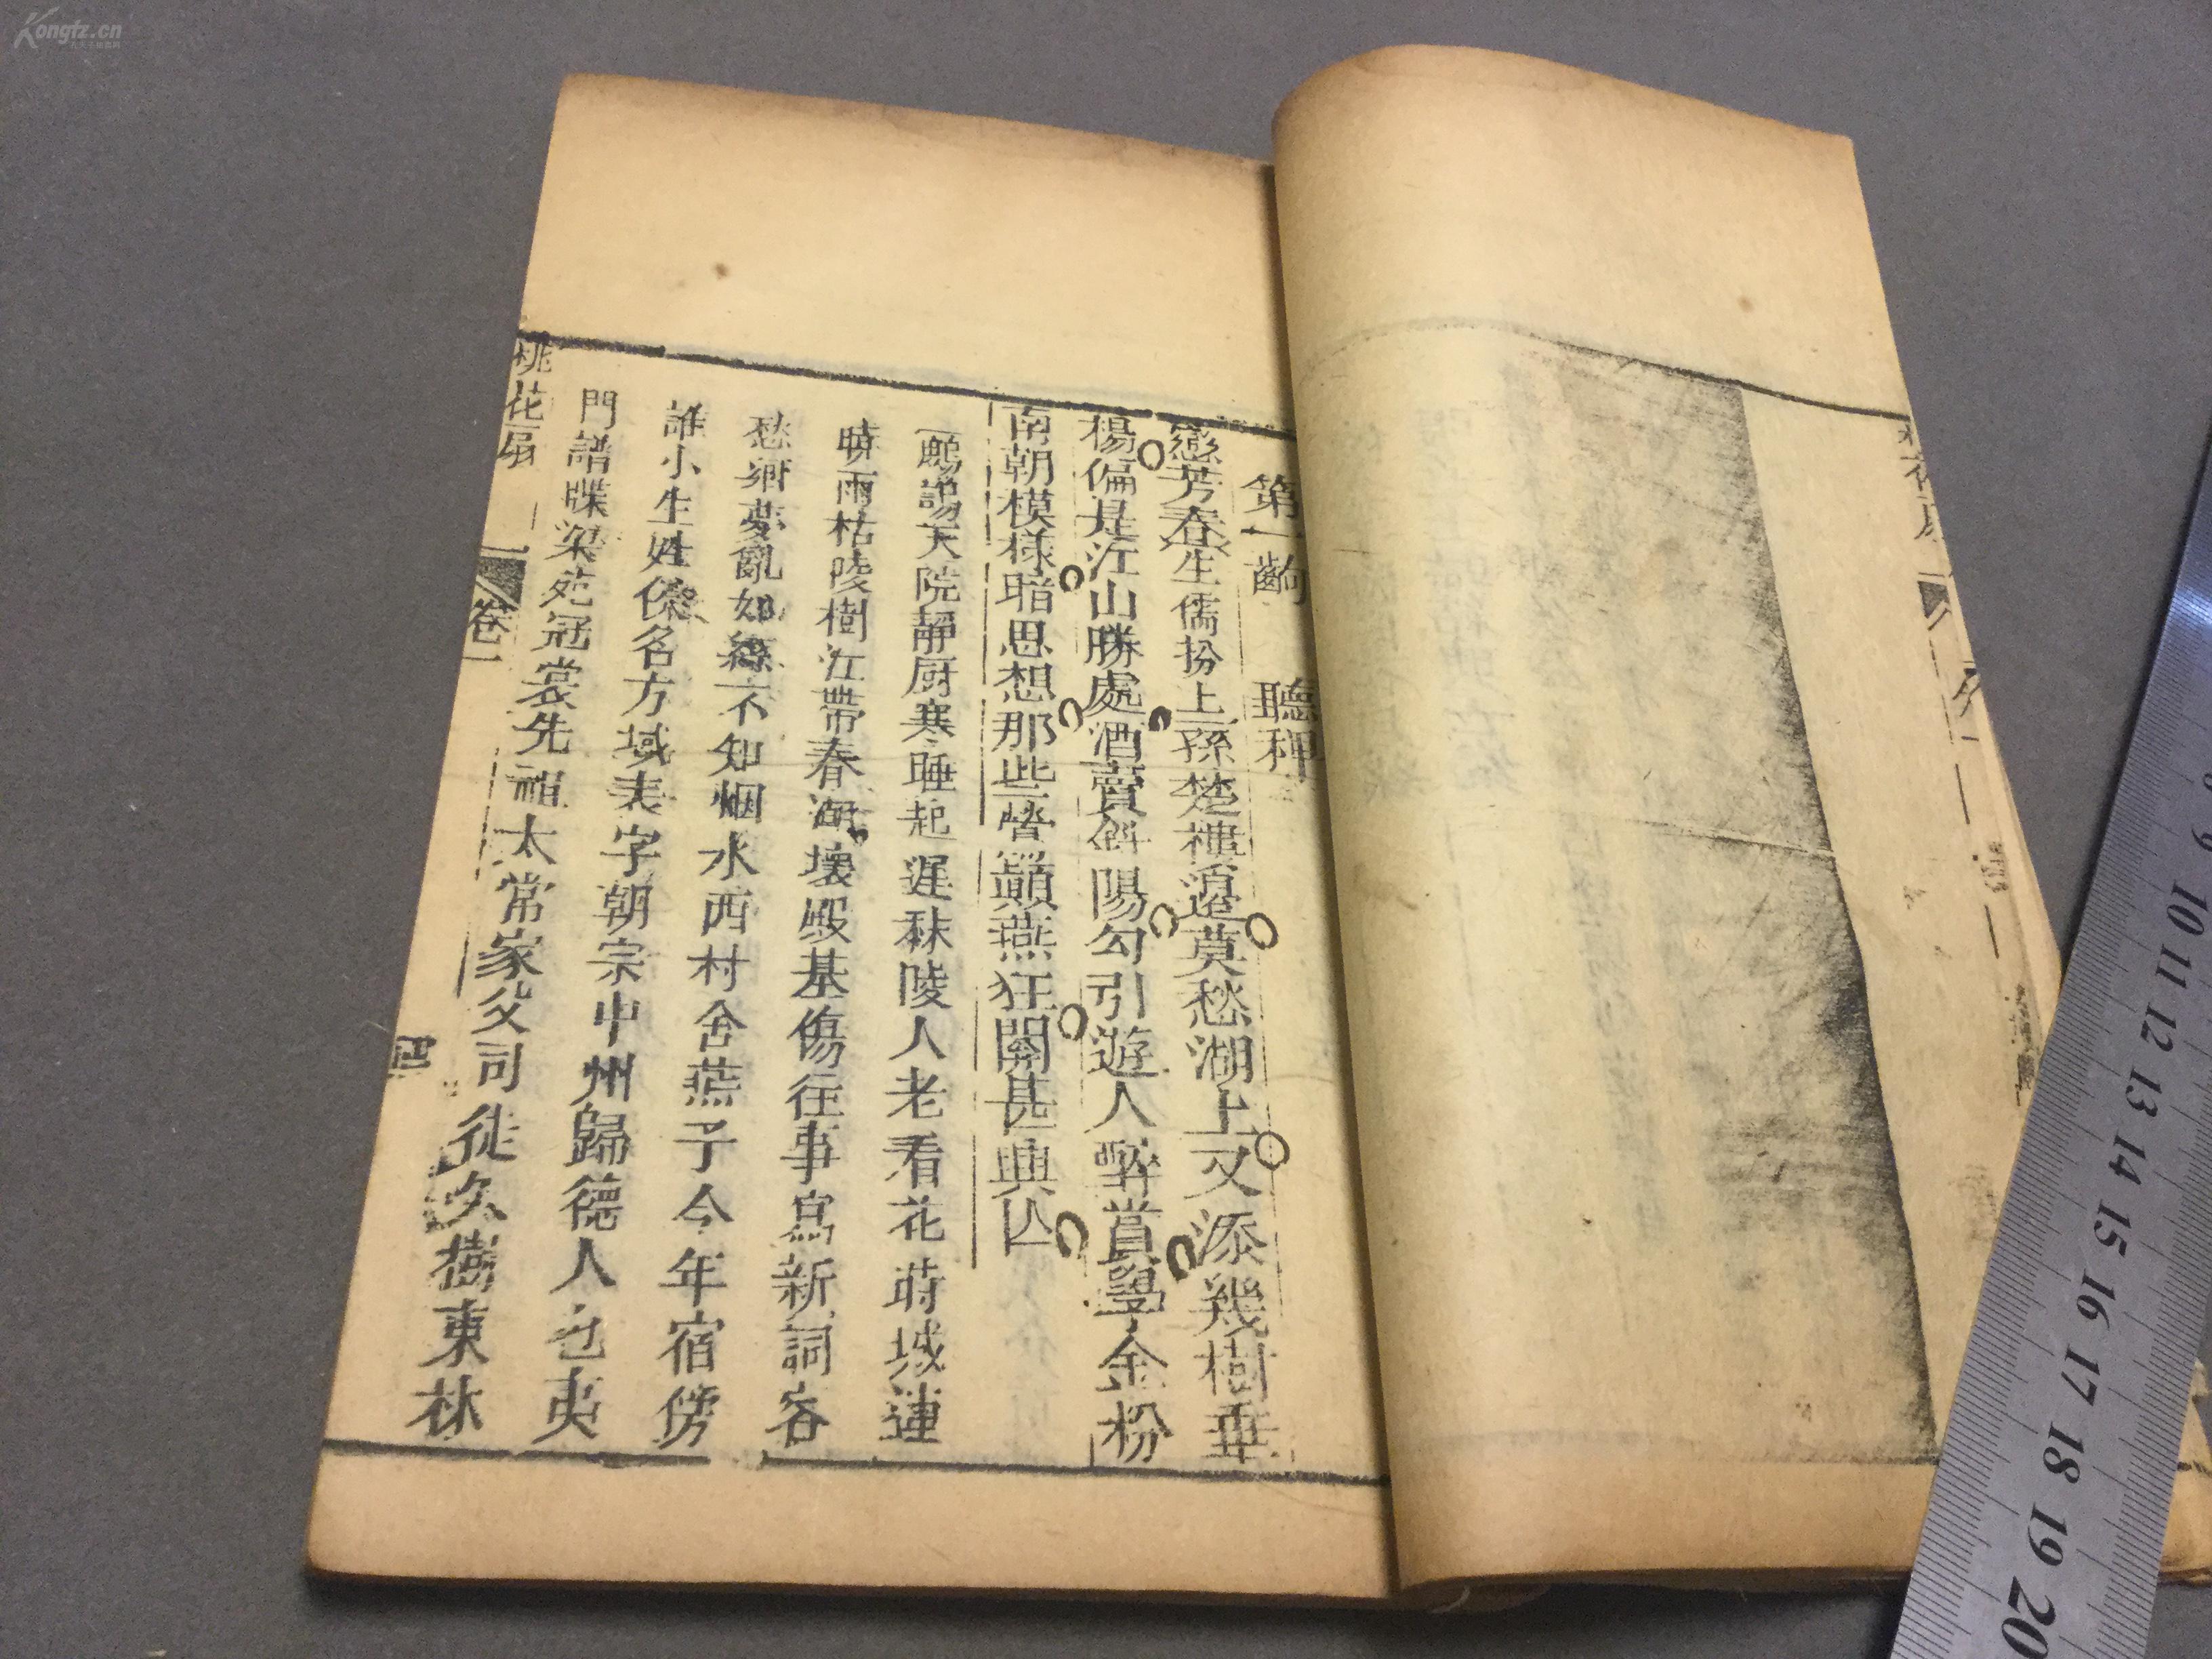 第一齣 聽稗
戀芳春生儒扮上孫楚樓邊莫愁湖上又添幾樹垂
楊偏是江山勝處酒賣斜陽勾引遊人醉賞學金粉
南朝模樣暗思想那些鶯顛燕狂關甚興亡
鷓鴣天院靜厨寒睡起遲秣陵人老看花時城連
曉雨枯陵樹江帶春潮壞殿基傷往事寫新詞客
愁鄉夢亂如絲不知烟水西村舍燕子今年宿傍
誰小生姓侯名方域表字朝宗中州歸德人也夷
門譜牒梁苑冠裳先祖太常家父司徒久樹東林
桃花扇 卷一 四
Kongfz.cn
8 9 10 11 12 13 14 15 16 17 18 19 20